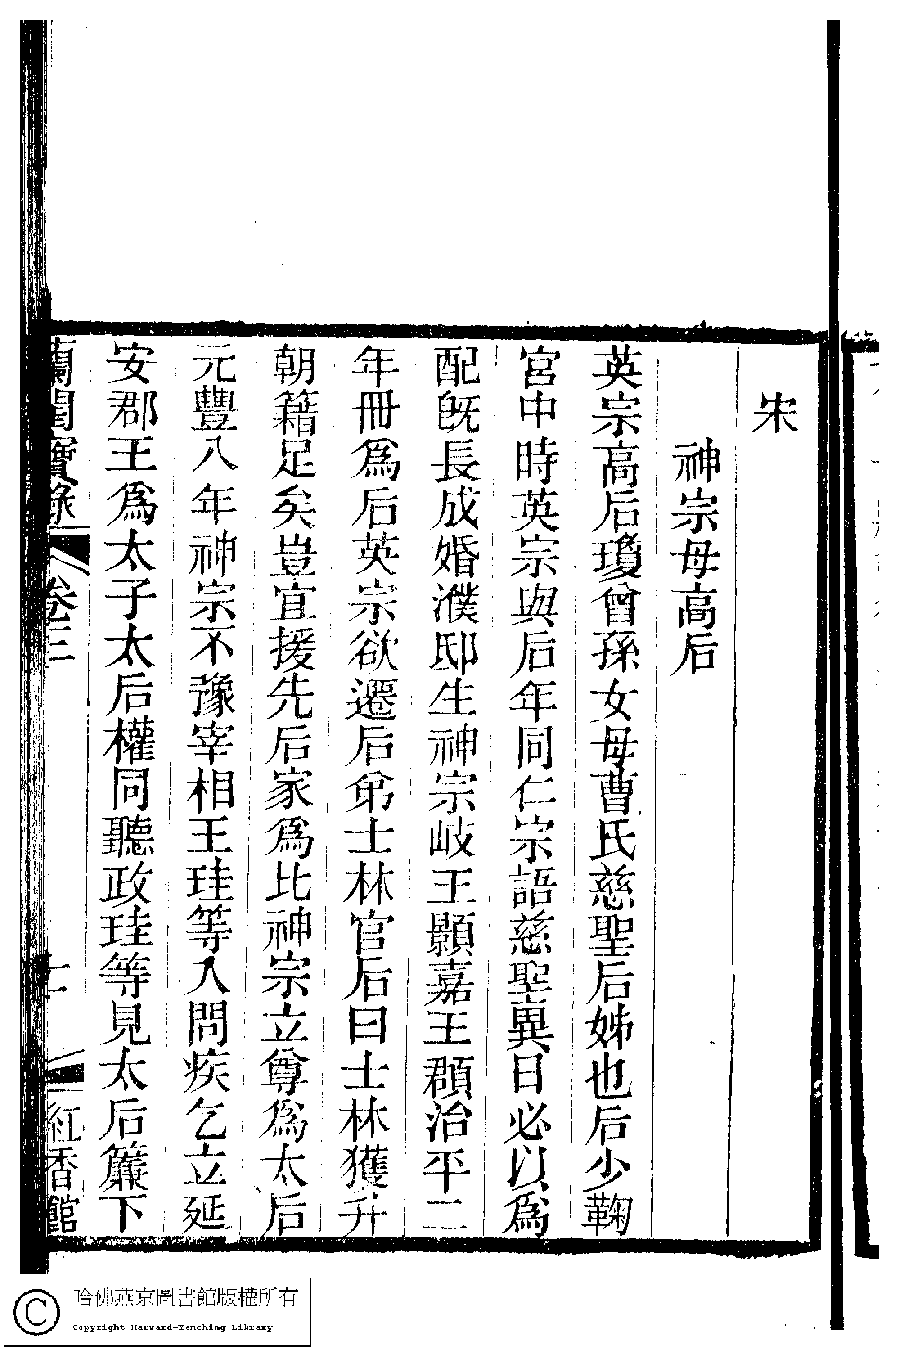 宋
神宗母高后
英宗高后瓊曾孫女母曹氏慈聖后姊也后少鞠
宮中時英宗與后年同仁宗語慈聖異日必以爲
配旣長成婚濮邸生神宗岐王顥嘉王頵治平二
年冊爲后英宗欲遷后弟士林官后曰士林獲升
朝籍足矣豈宜援先后家爲比神宗立尊爲太后
元豐八年神宗不豫宰相王珪等入問疾乞立延
安郡王爲太子太后權同聽政珪等見太后簾下
蘭閨寶錄 卷三 紅香館
哈佛燕京圖書館版權所有
Copyright Harvard-Yenching Library